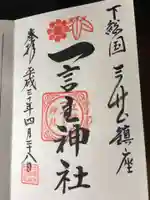 下総国 三竹山鎮座
一言主神社
奉拝 平成三十年四月二十八日